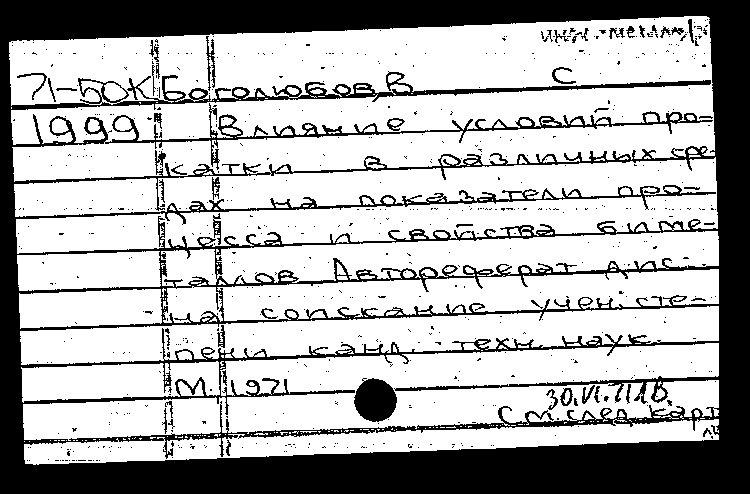 71-50К Боголюбов, В С
1999 Влияние условий про=
катки в различных сре-
дах на показатели про=
цесса и свойства биме-
таллов. Автореферат дис.
на соискание учен. сте-
пени канд. техн. наук.
М. 1971
30.VI.71 1В.
См. след. карт